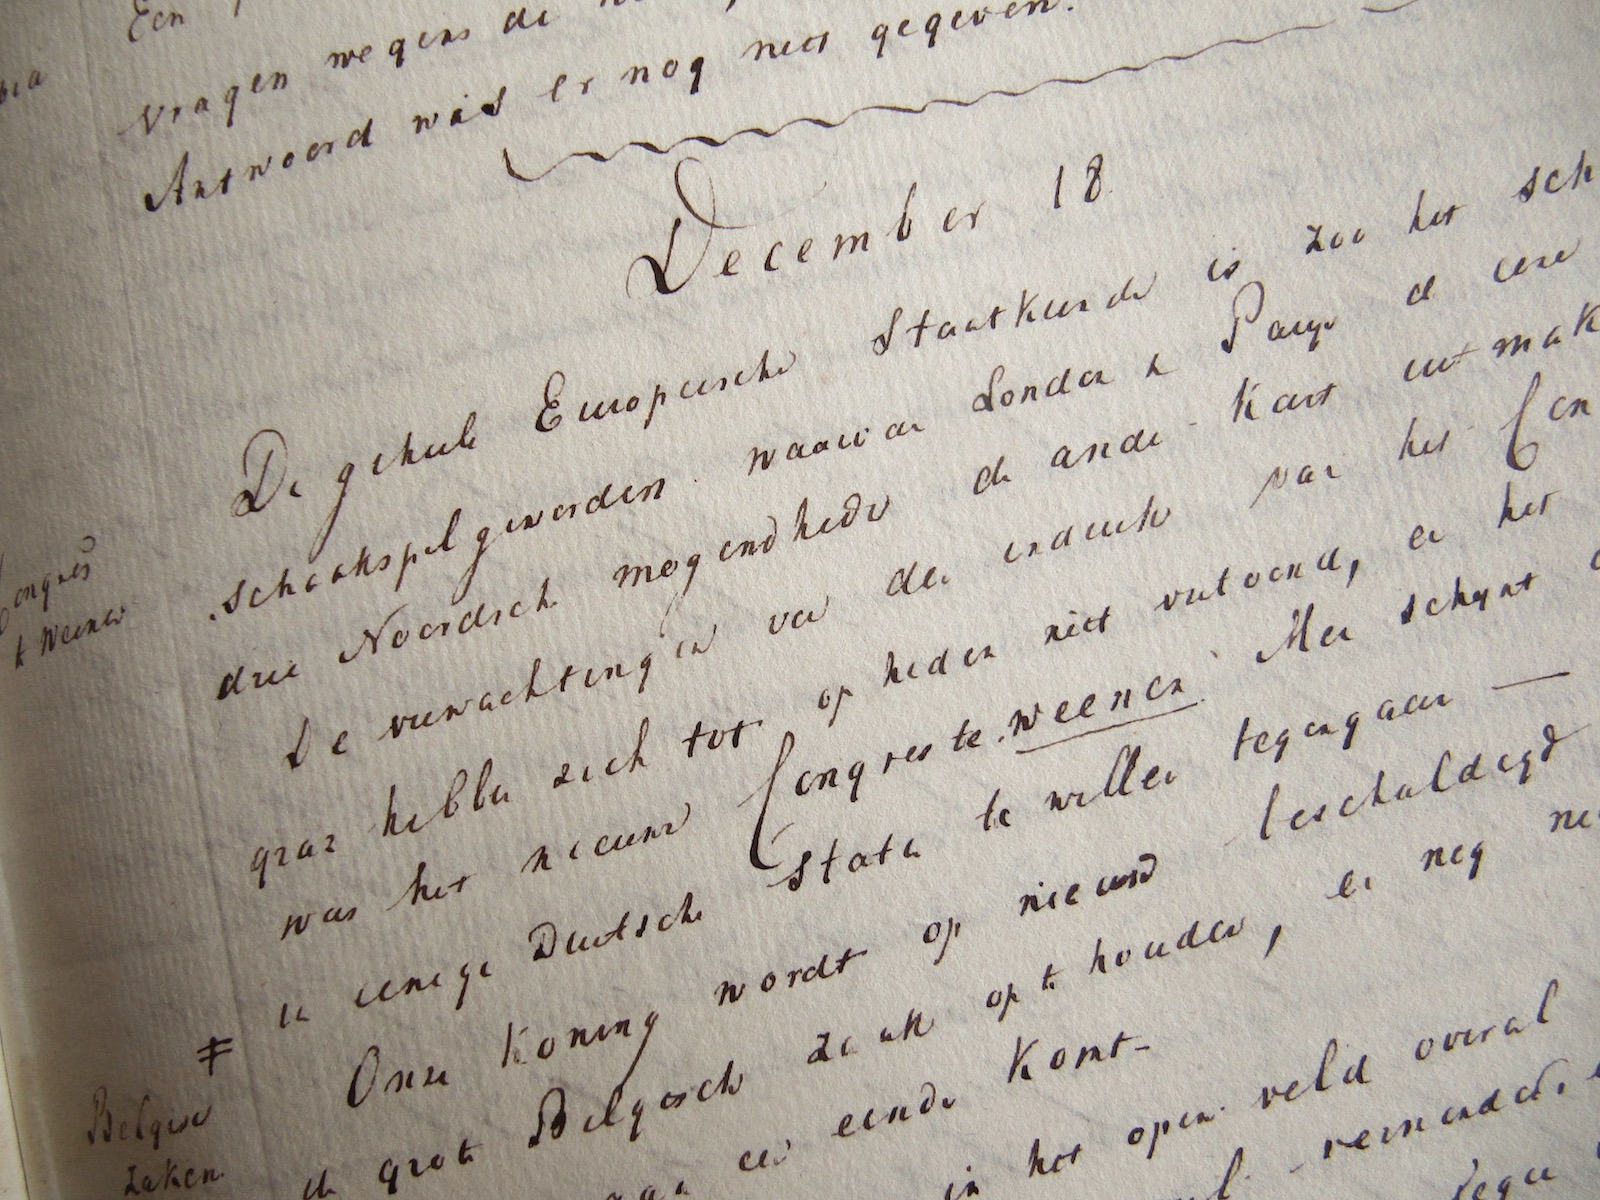 Een
vragen wegens de
Antwoord was er nog niet gegeven.
December 18
De geheele Europeesche Staatkunde is zoo het sch
schaakspel geworden waarvan Londen & Parijs de eene
drie Noordsche mogendheden de andere Kant uitmak
De verwachtingen van den indruk van het Con
gres hebben zich tot op heden niet vertoond, en het
was het nieuwe Congres te Weenen. Men schijnt
en eenige Duitsche Staten te willen tegengaan —
Onze Koning wordt op nieuw beschuldigd
de groote Belgische zaak op te houden, en nog ni
een einde komt-
in het open veld overal
Congres
te Weenen
Belgische
zaken.